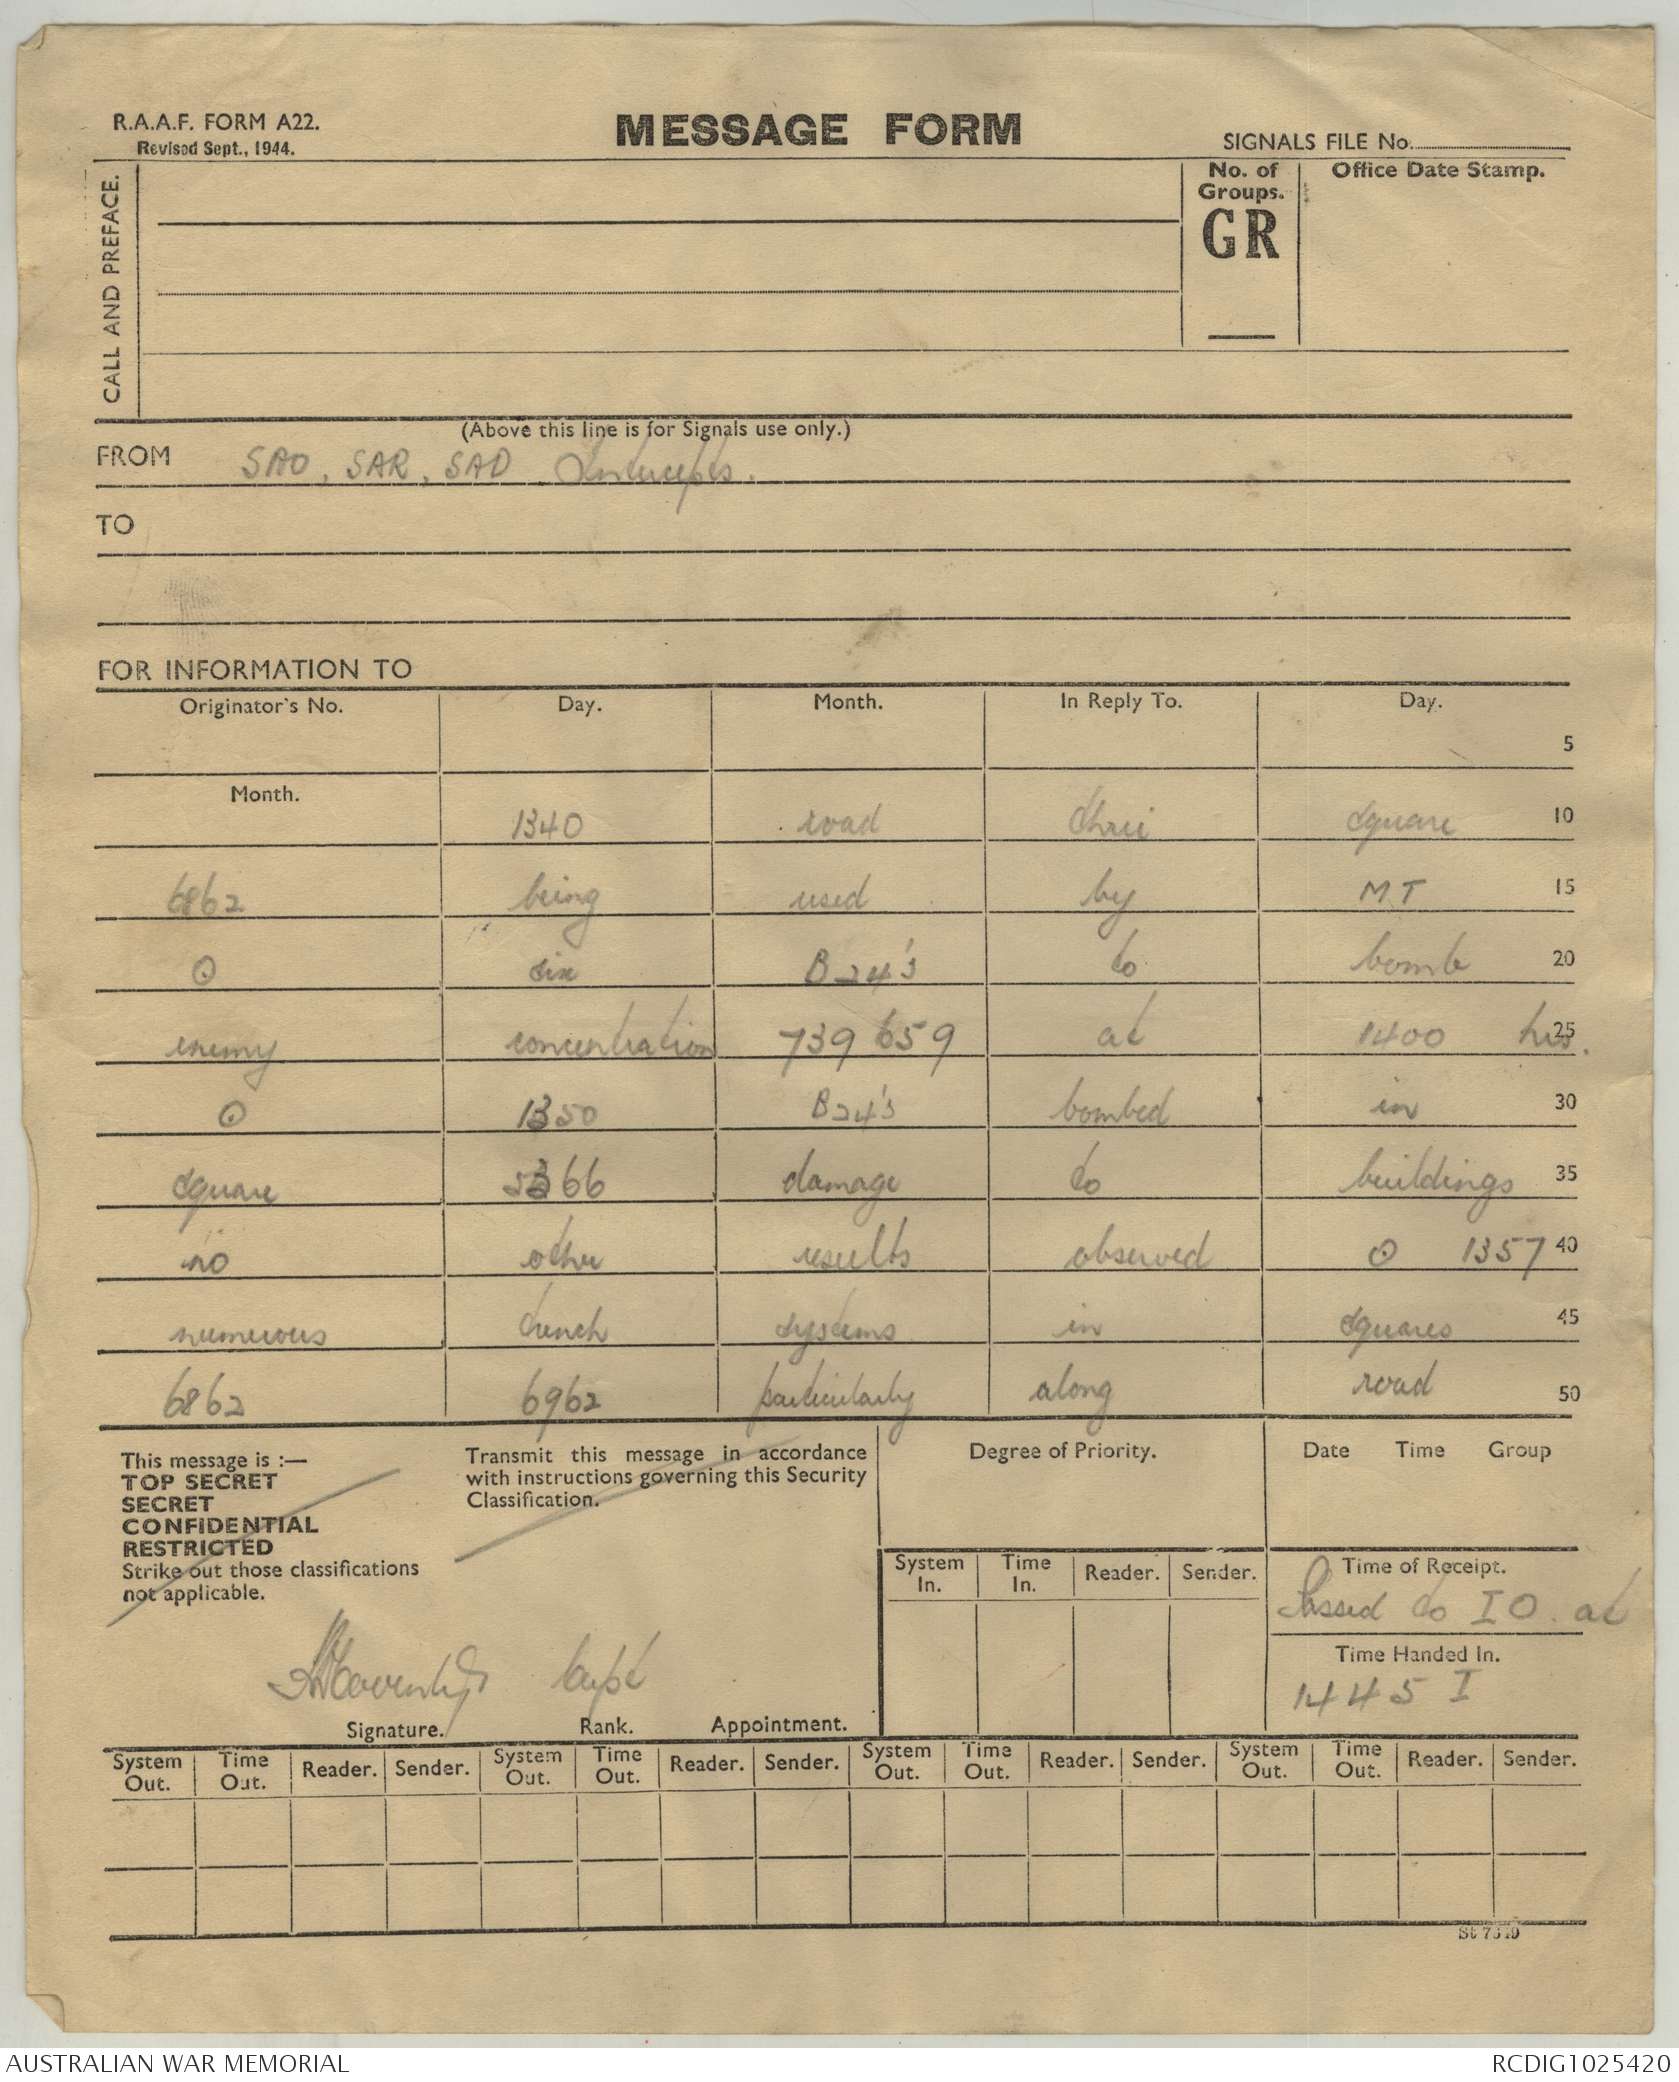 R.A.A.F. FORM A22.
Revised Sept., 1944.
MESSAGE FORM
SIGNALS FILE No.
CALL AND PREFACE.
No. of Groups.
GR
Office Date Stamp.
(Above this line is for Signals use only.)
FROM SAO, SAR, SAD Intercepts.
TO
FOR INFORMATION TO
Originator's No. Day. Month. In Reply To. Day.
5
Month. 1340 road thru square 10
6862 being used by MT 15
⊙ six B24's to bomb 20
enemy concentration 739659 at 1400 hrs. 25
⊙ 1350 B24's bombed in 30
square 5366 damage to buildings 35
no other results observed ⊙ 1357 40
numerous trench systems in squares 45
6862 6962 particularly along road 50
This message is :—
TOP SECRET
SECRET
CONFIDENTIAL
RESTRICTED
Strike out those classifications
not applicable.
Transmit this message in accordance
with instructions governing this Security
Classification.
Degree of Priority.
Date Time Group
System In. Time In. Reader. Sender.
Time of Receipt.
Passed to IO at
Time Handed In.
1445 I
Capt
Signature. Rank. Appointment.
System Out. Time Out. Reader. Sender. System Out. Time Out. Reader. Sender. System Out. Time Out. Reader. Sender. System Out. Time Out. Reader. Sender.
AUSTRALIAN WAR MEMORIAL
RCDIG1025420